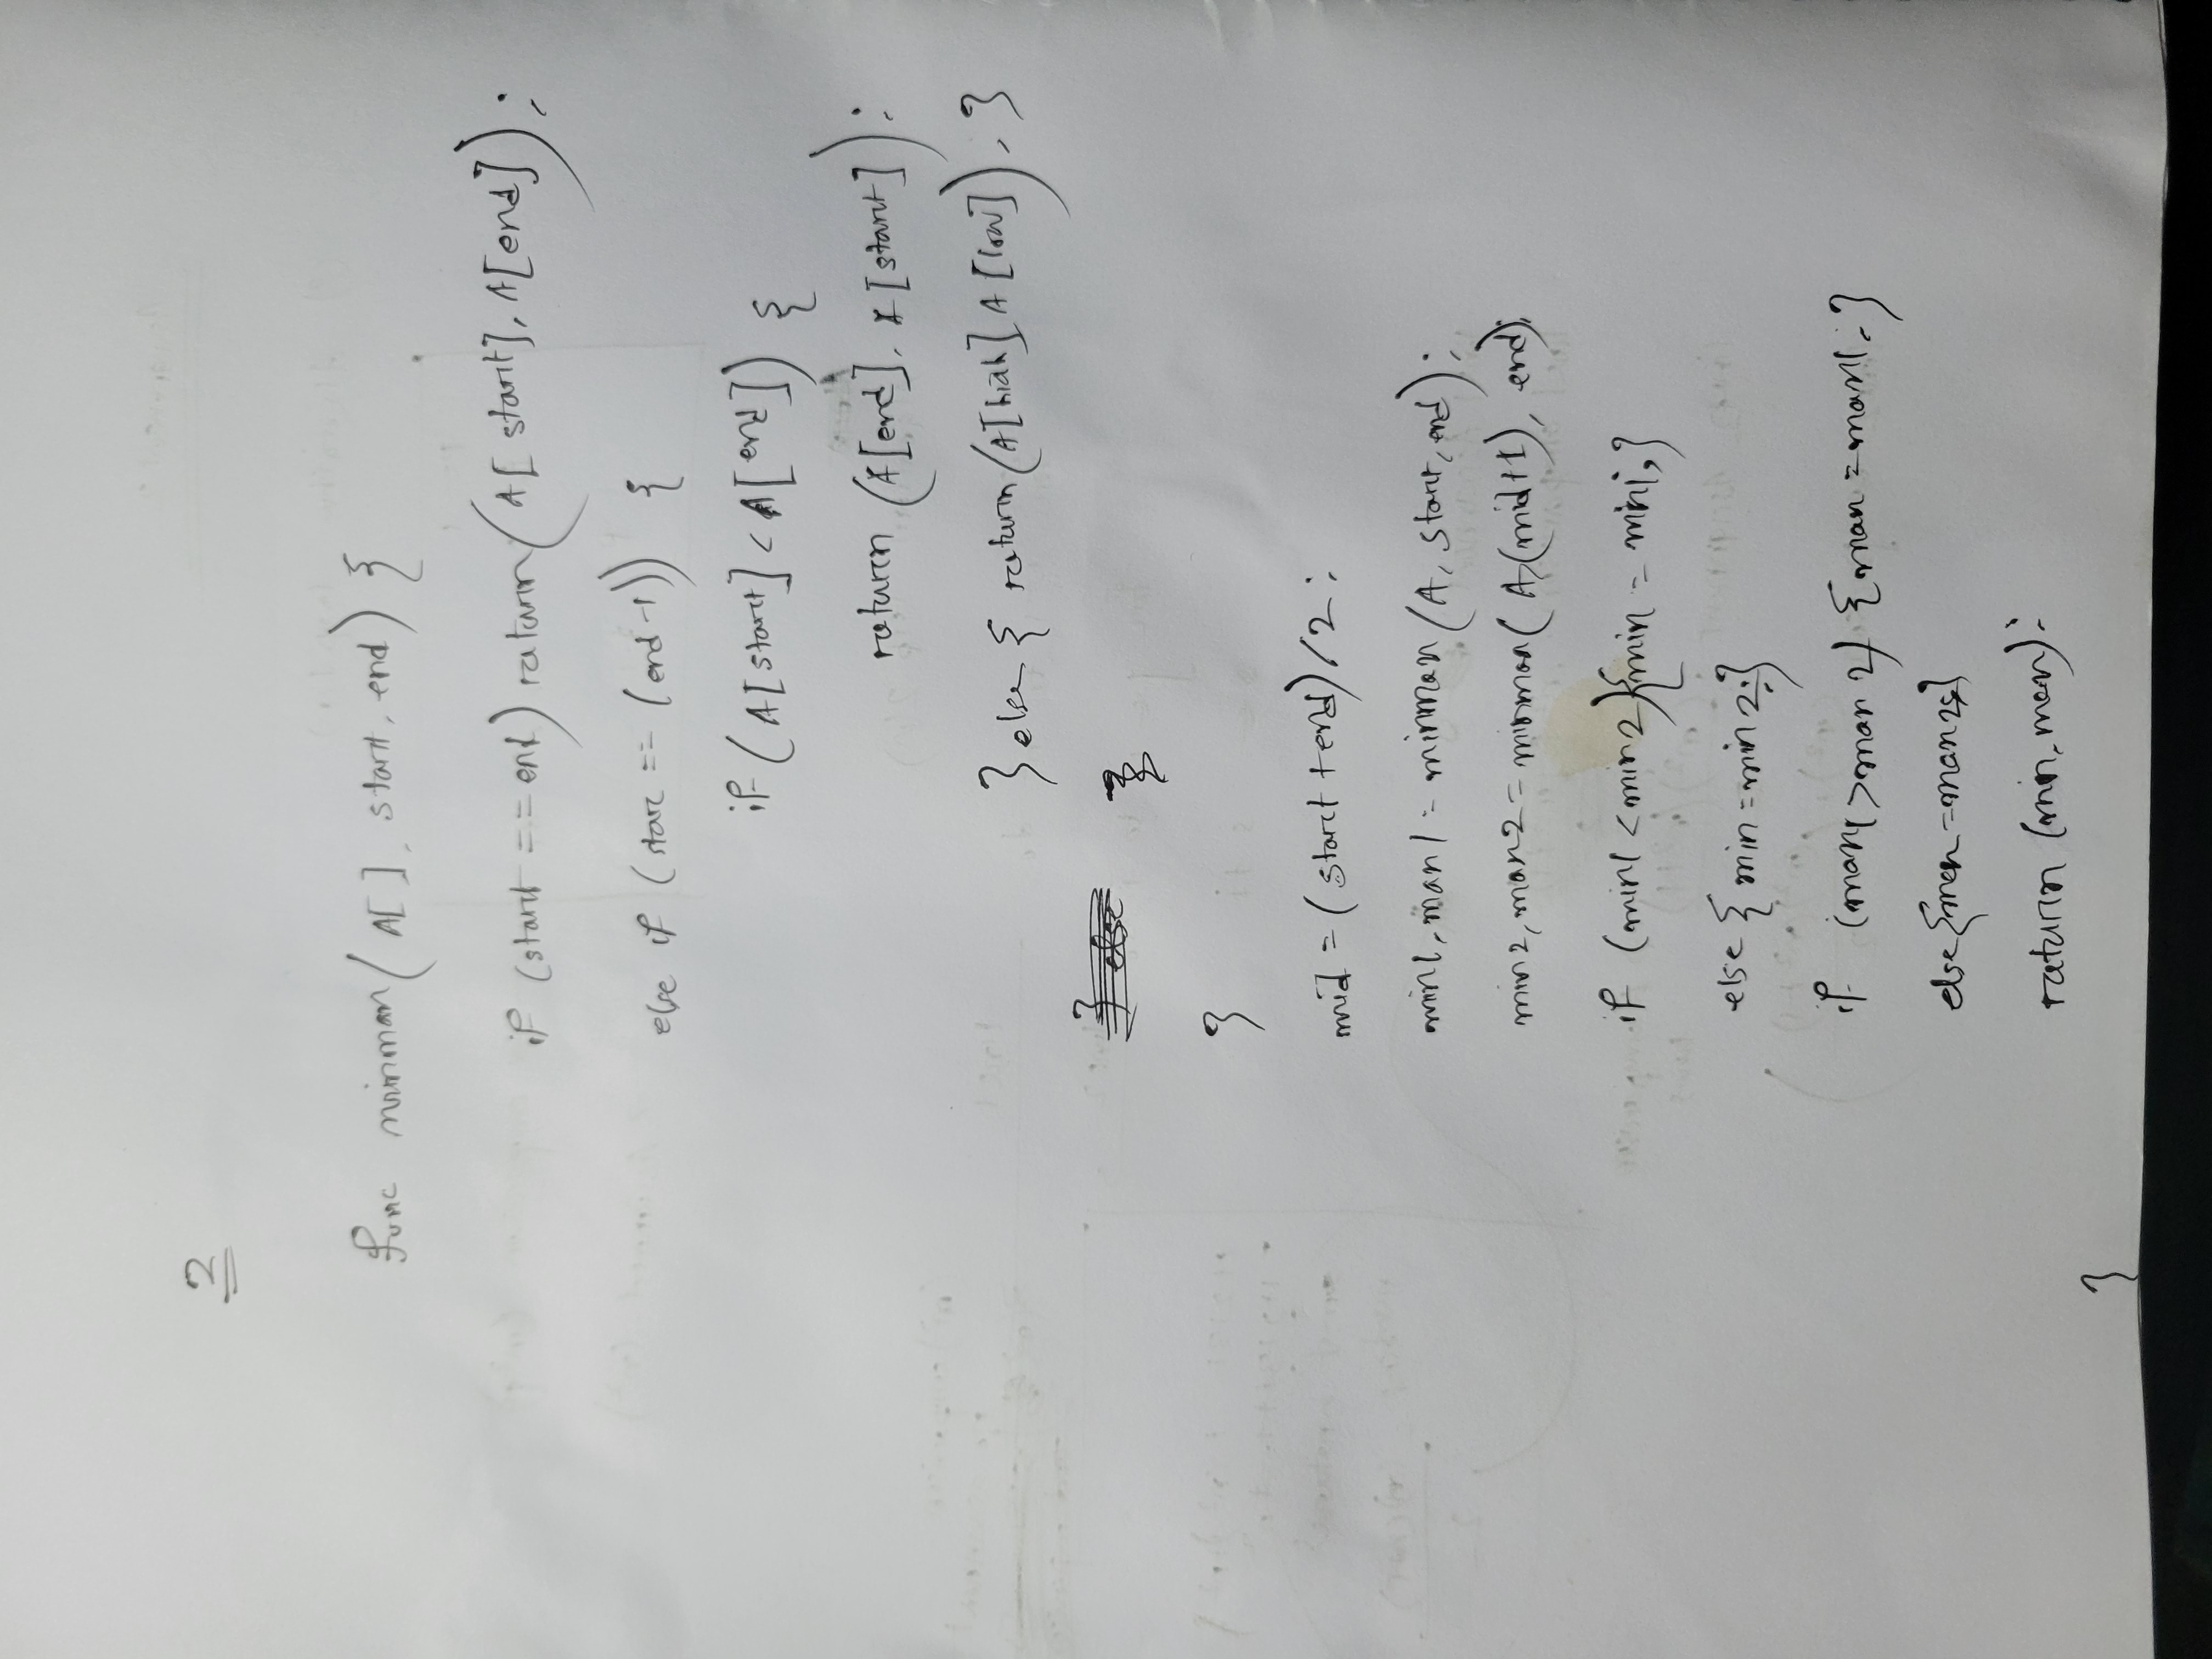 2
func minman(A[], start, end) {
if (start == end) return (A[start], A[end]);
else if (star == (end-1)) {
if (A[start] < A[end]) {
return (A[end], A[start]);
} else { return (A[high] A[low]), }
}
mid = (start + end)/2;
min1, man1 = minman (A, start, end);
min2, man2 = minman (A, (mid+1), end);
if (min1 < min2) {min = min1;}
else { min = min2;}
if (man1 > man2) {man = man1;}
else {man = man2;}
return (min, man);
}